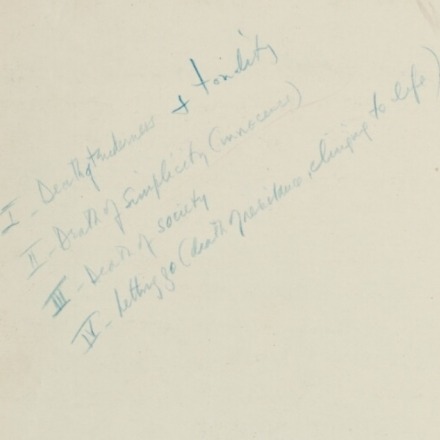 I - Death of tenderness + tonality
II - Death of simplicity (innocence)
III - Death of society
IV - Letting go (death of resistance, clinging to life)